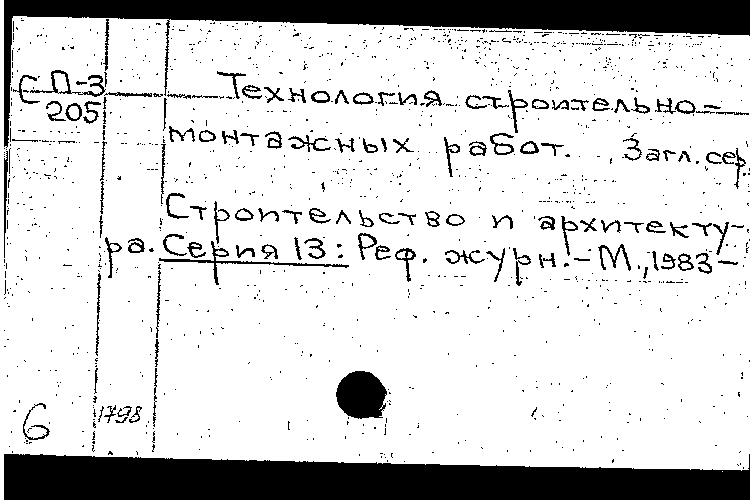 С П-3
205
Технология строительно-
монтажных работ. Загл. сер.
Строительство и архитекту-
ра. Серия 13: Реф. журн. - М., 1983 -
6
1798